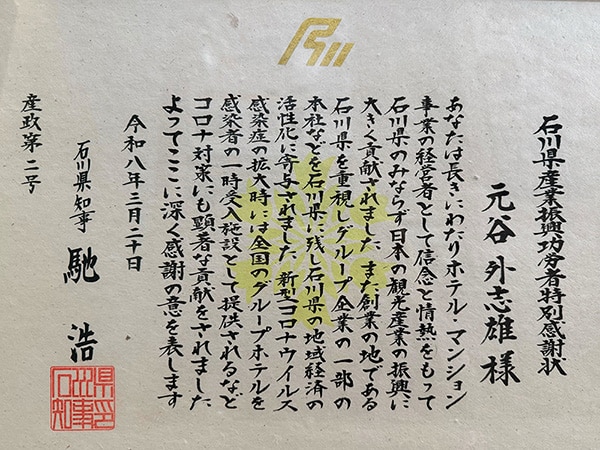 石川県産業振興功労者特別感謝状
元谷外志雄様
あなたは長きにわたりホテル・マンション
事業の経営者として信念と情熱をもって
石川県のみならず日本の観光産業の振興に
大きく貢献されました また創業の地である
石川県を重視しグループ企業の一部の
本社などを石川県に残し石川県の地域経済の
活性化に寄与されました 新型コロナウイルス
感染症の拡大時には全国のグループホテルを
感染者の一時受入施設として提供されるなど
コロナ対策にも顕著な貢献をされました
よってここに深く感謝の意を表します
令和八年三月二十日
石川県知事 馳浩
石川県知事印
産政第二号